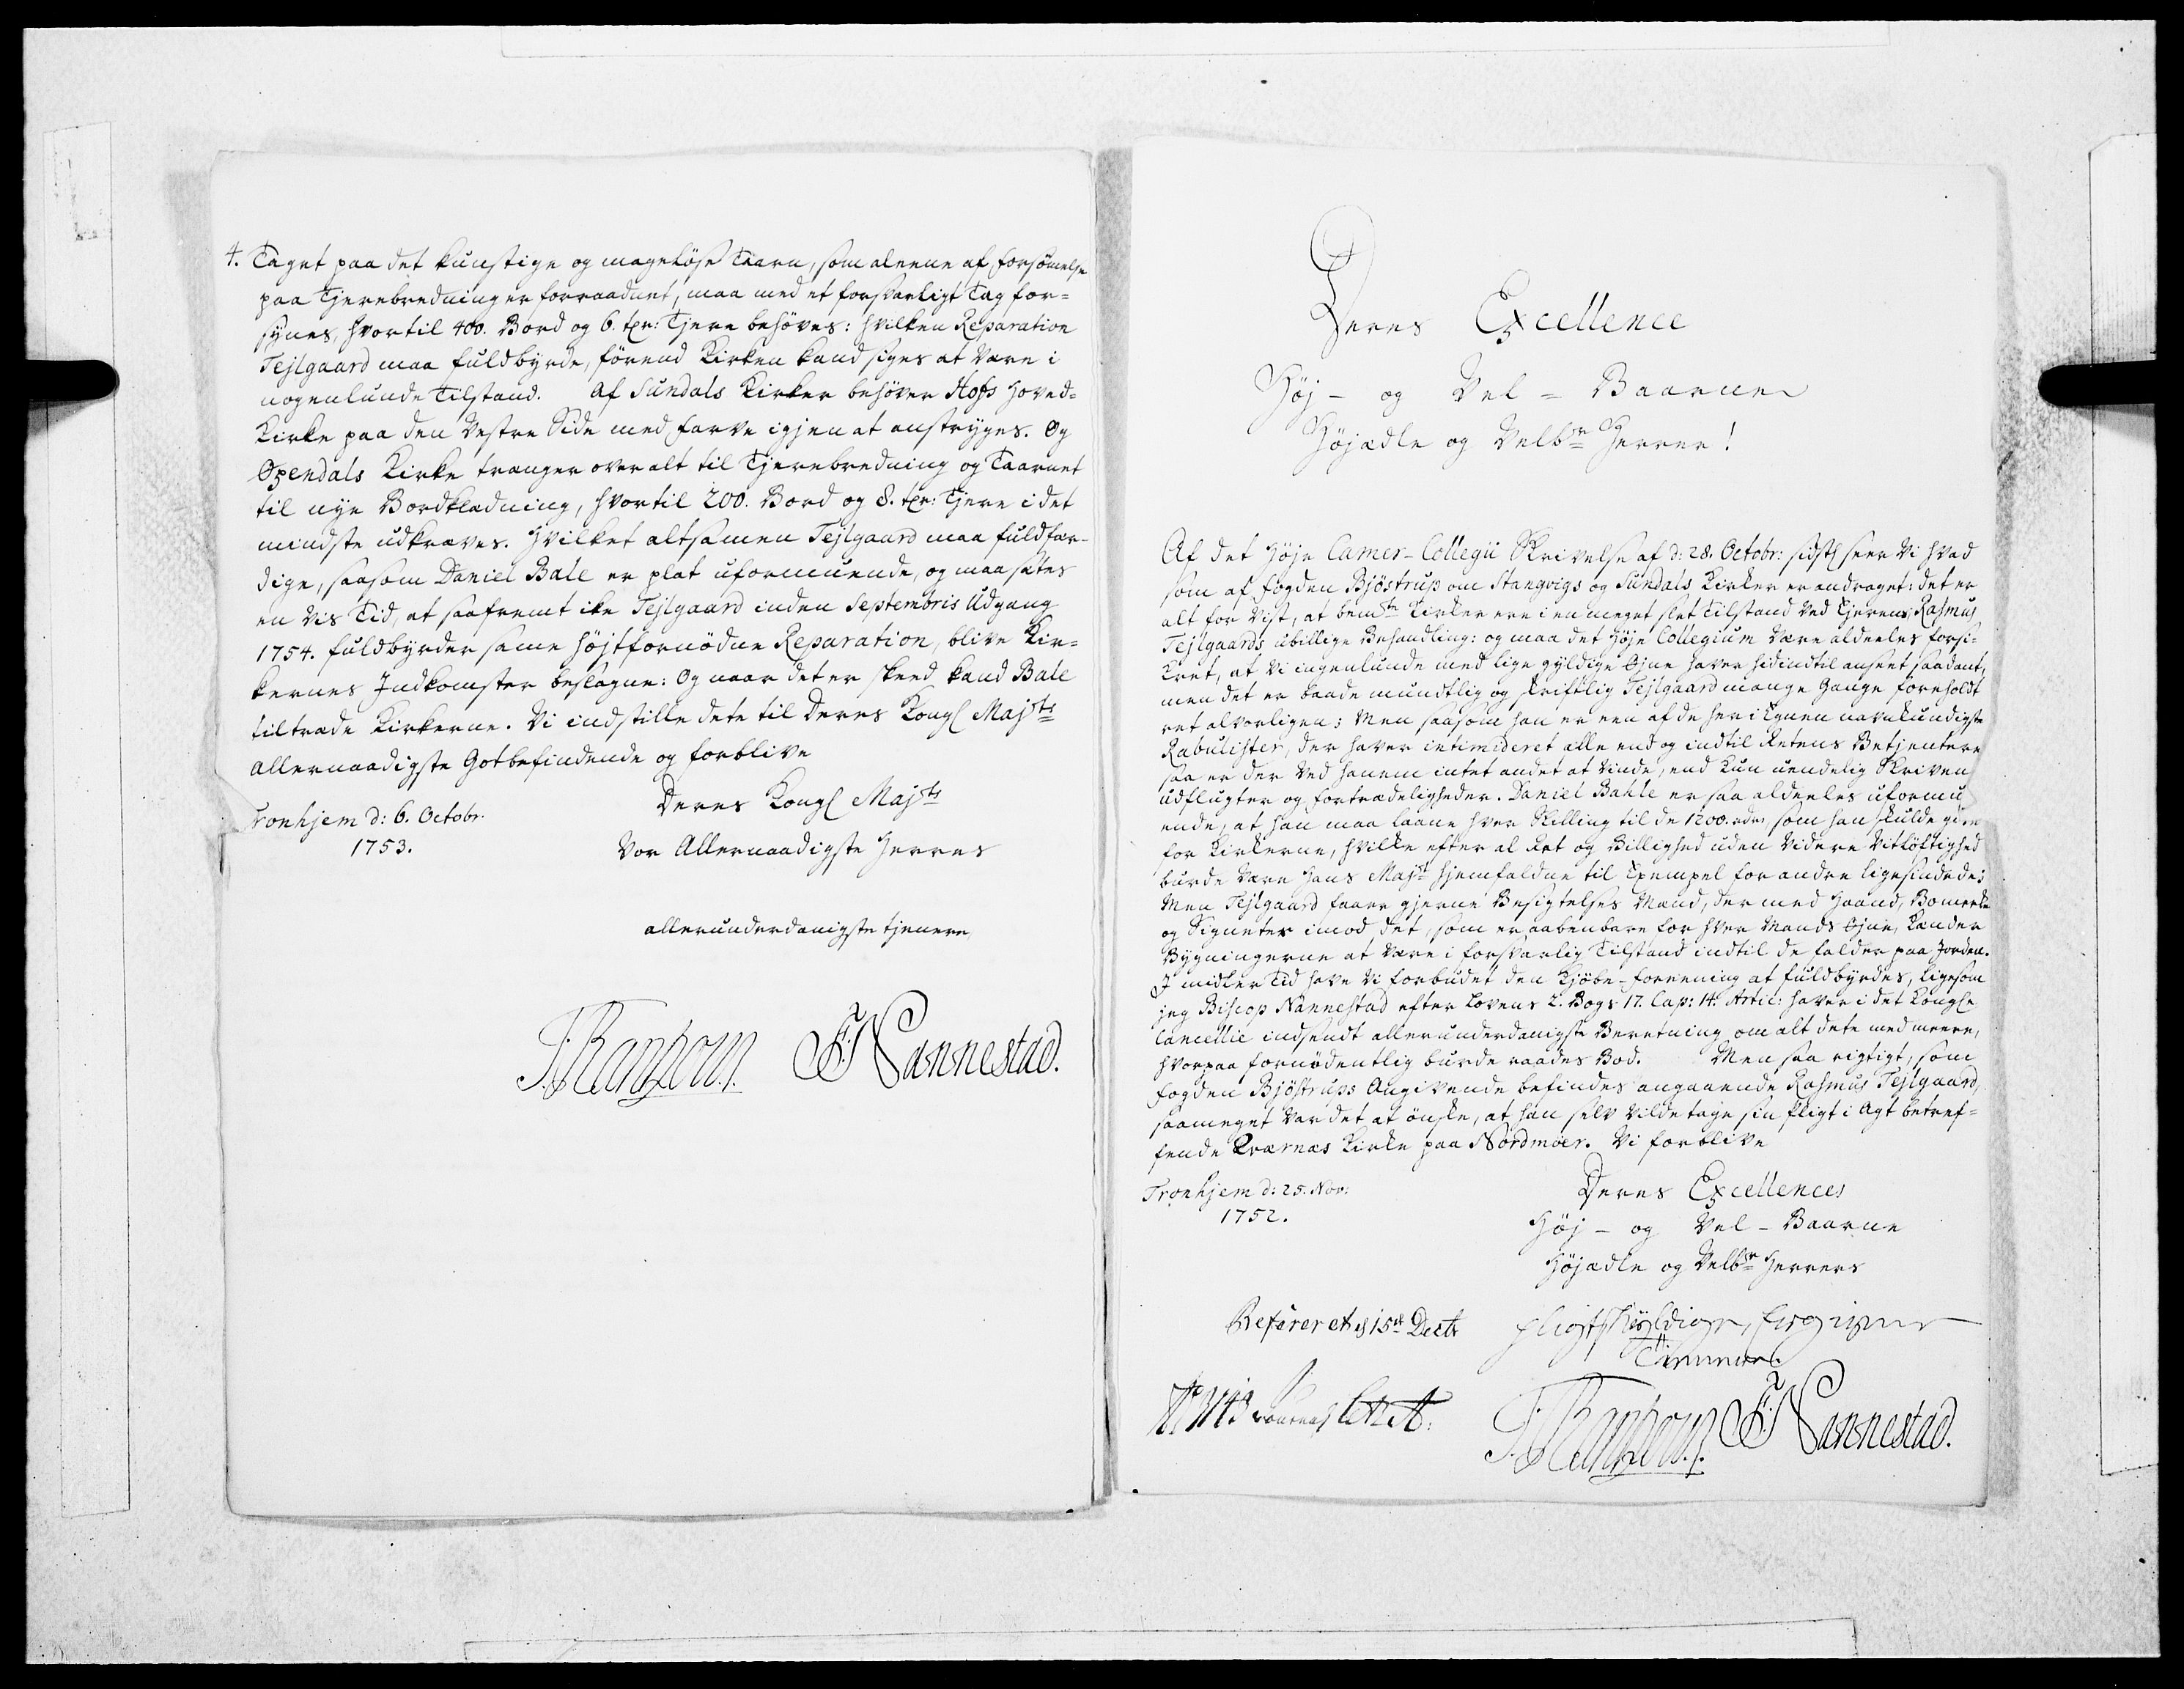 4. Taget paa det kunstige og mageløse Taarn, som aleene af forsømelse
paa Tjerebredning er forraadnet, maa med et forsvarligt Tag for=
synes, hvortil 400. Bord og 6. tør: Tjere behøves: hvilken Reparation
Tejlgaard maa fuldbyrde, førend Kirken kand siges at være i
nogenlunde Tilstand. Af Sundals Kirker behøver Hofs Hoved=
Kirke paa den Vestre Side med farve igjen at anstryges. Og
Øxendals Kirke trænger over alt til Tjerebredning og Taarnet
til nye Bordklædning, hvortil 200. Bord og 8. tør: Tjere i det
mindste udkræves. Hvilket altsamen Tejlgaard maa fuldfær-
dige, saasom Daniel Bale er plat uformuende, og maa sætes
en vis Tid, at saafremt ike Tejlgaard inden Septembris Udgang
1754. fuldbyrder same højstfornødne Reparation, blive Kir=
kernes Indkomster beslagne: Og naar det er skeed kand Bale
tiltræde Kirkerne. Vi indstille dete til Deres Kongl Majsts
allernaadigste Gotbefindende og forblive
Deres Kongl Majsts
Tronhjem d: 6. Octobr.
1753.
Vor Allernaadigste Herres
allerunderdanigste tjenere
F Nannestad.
Deres Excellence
Høj- og Vel-Baarne
Højædle og Velbne Herrer!
Af det Høje Camer-Collegii Skrivelse af d: 28. Octobr: sidstl seer Vi hvad
som af fogden Bjöstrup om Stangvigs og Sundals Kirker er andraget: det er
alt for vist, at bemte Kirker ere i en meget slet Tilstand ved Ejerens Rasmus
Tejlgaards ubillige Behandling: og maa det Høje Collegium være aldeeles forsi=
kret, at Vi ingenlunde med lige gyldige Øjne haver hidindtil anseet saadant,
men det er baade mundtlig og skriftlig Tejlgaard mange Gange foreholdt
ret alvorligen; Men saasom han er een af de her i Egnen navnkundigste
Rabulister, der haver intimideret alle end og indtil Retens Betjentere
saa er der ved hanem intet andet at vinde, end kun uendelig Skriven
udflugter og fortrædeligheder. Daniel Bahle er saa aldeeles uformu
ende, at han maa laane hver Skilling til de 1200. rdr, som han skulde give
for Kirkerne, hvilke efter al Ret og Billighed uden videre Vitløftighed
burde være Hans Majst hjemfaldne til Exempel for andre ligesindede;
Men Tejlgaard faaer gjerne Besigtelses Mænd, der med Haand, Bomerke
og Signeter imod det, som er aabenbare for hver Mands Øjne, kiender
Bygningerne at være i forsvarlig Tilstand indtil de falder paa Jorden.
I midler Tid have vi forbudet den Kjöbe-foreening at fuldbyrdes, ligesom
jeg Biscop Nannestad efter Lovens 2. Bogs 17. Cap: 14. Artic: haver i det Kongle
Cancellie indsendt allerunderdanigste Beretning om alt dete med meere,
hvorpaa fornødentlig burde raades Bod. Men saa rigtigt, som
fogden Bjöstrups Angivende befindes angaaende Rasmus Tejlgaard,
saameget var det at ønske, at han selv vilde tage sin Pligt i Agt betref=
fende Kværnæs Kirke paa Nordmøer. Vi forblive
Deres Excellences
Tronhjem d: 25. Nov:
1752.
Høj- og Vel-Baarne
Højædle og Velbne Herrers
Refereret d 15de Decbr
pligtskyldigste
F Nannestad.